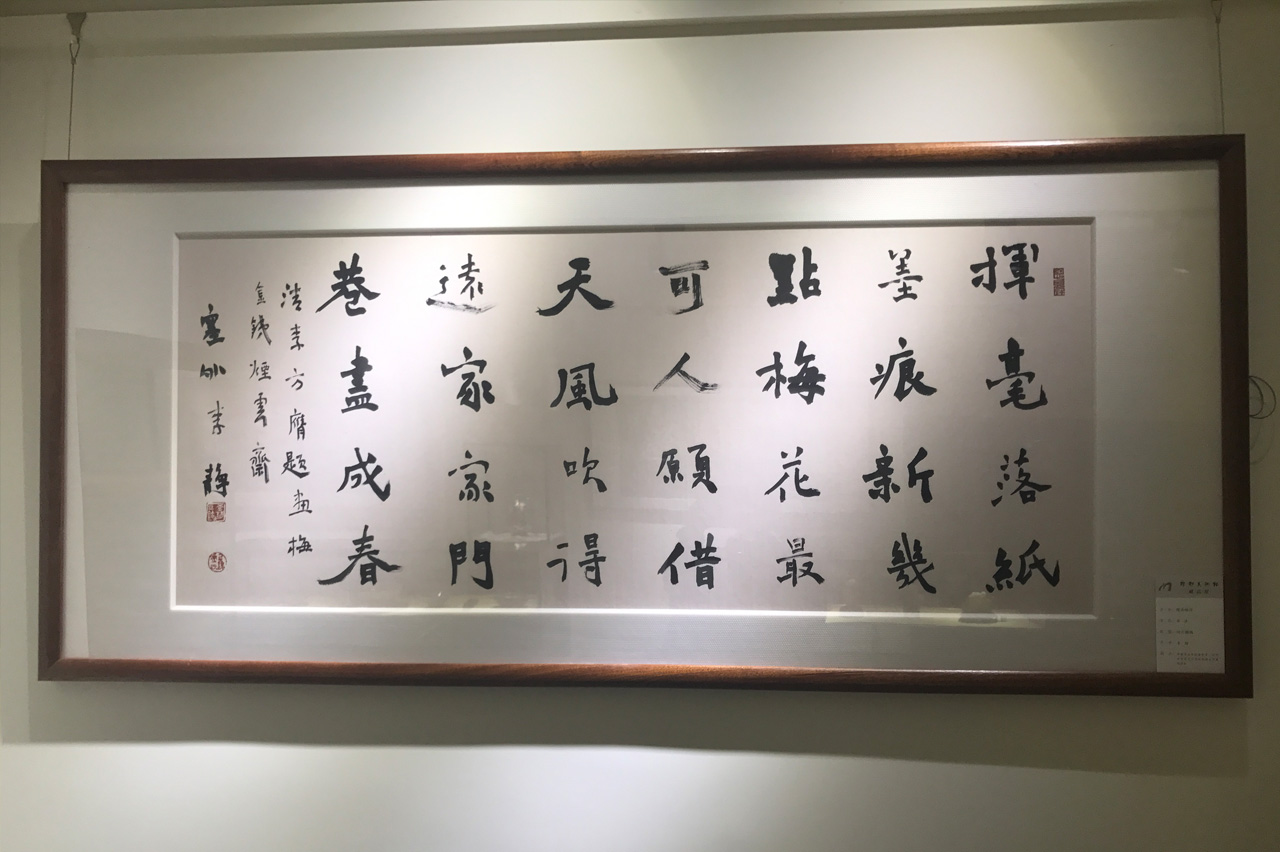 揮毫落紙
墨痕新幾
點梅花最
可人願借
天風吹得
遠家家門
巷盡成春
清李方膺題畫梅
金錢煙雲齋
李靜